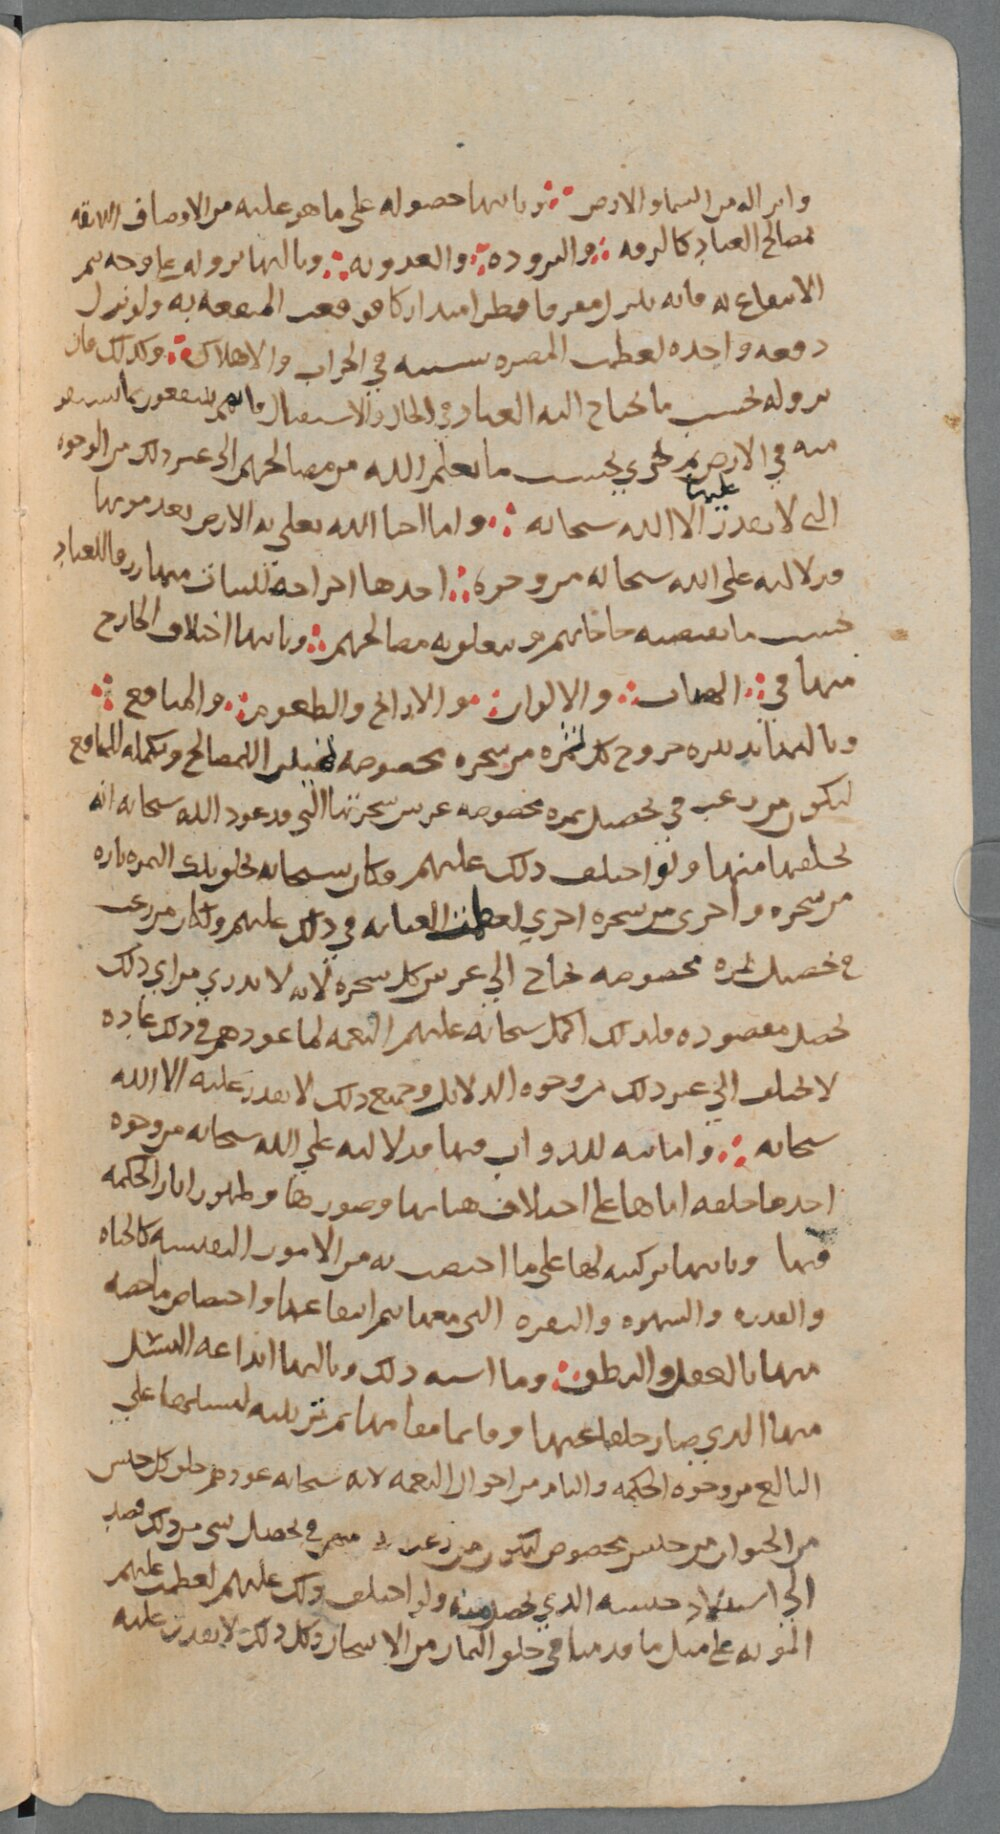 وانزاله من السما والارض ∴ وثانيها حصوله على ما هو عليه من الاوصاف اللايقه
بمصالح العباد كالرقه ∴ والبروده ∴ والعذوبه ∴ وثالثها نزوله علي وجه يتم
الانتفاع به فانه ينزل مفرقا قطرا متداركا فوقعت المنفعه به ولو نزل
دفعه واحده لعظمت المضره بسببه في الخراب والاهلاك ∴ وكذلك فان
نزوله بحسب ما يحتاج اليه العباد في الحال والاستقبال فانهم ينتفعون بما يستقر
منه في الارض ثم يجري بحسب ما يعلم الله من مصالحهم الى غير ذلك من الوجوه
التي لا يقدر عليها الا الله سبحانه ∴ واما احيا الله تعلى به الارض بعد موتها
فدلالته على الله سبحانه من وجوه ∴ احدها اخراجه للنبات منها رزقا للعباد
بحسب ما تقتضيه حاجاتهم وتتعلق به مصالحهم ∴ وثانيها اختلاف الخارج
منها في ∴ الهيات ∴ والالوان ∴ والاراىح والطعوم ∴ والمنافع ∴
وثالثها تدبيره خروج كل ثمره من شجره مخصوصه تيسيرا للمصالح وتكمله للمنافع
ليكون من رغب في تحصيل ثمره مخصوصه غرس شجرتها التي قد عود الله سبحانه انه
يخلقها منها ولو اختلف ذلك عليهم فكان سبحانه يخلق تلك الثمره تاره
من شجره واخرى من شجره اخري لعظمت العنايه في ذلك عليهم ولكان من رغب
في تحصيل ثمره مخصوصه يحتاج الي غرس كل شجره لانه لا يدري من اي ذلك
يحصل مقصوده فلذلك اكمل سبحانه عليهم النعمه لما عودهم في ذلك عاده
لا تختلف الي غير ذلك من وجوه الدلايل وجميع ذلك لا يقدر عليه الا الله
سبحانه ∴ واما بثه للدواب فيها فدلالته علي الله سبحانه من وجوه
احدها خلقه اياها علي اختلاف هياتها وصورها وظهور اثار الحكمه
فيها وثانيها تركيبه لها على ما اختصت به من الامور النفيسه كالحياه
والقدره والشهوه والنفره التي معها يتم انتفاعها واختصاص ما خصه
منها بالعقل والنطق ∴ وما اشبه ذلك وثالثها ابداعه النسل
منها الذي صار خلفا عنها وقايما مقامها ثم تربيته لنسلها علي
البالغ من وجوه الحكمه والتام من احوال النعمه لانه سبحانه عودهم خلق كل جنس
من الحيوان من جنس مخصوص ليكون من رغب منهم في تحصيل شي من ذلك قصد
الي استيلاد جنسه الذي يحصل منه ولو اختلف ذلك عليهم لعظمت عليهم
المونه علي مثل ما قدمنا في خلق الثمار من الاشجار وكل ذلك لا يقدر عليه